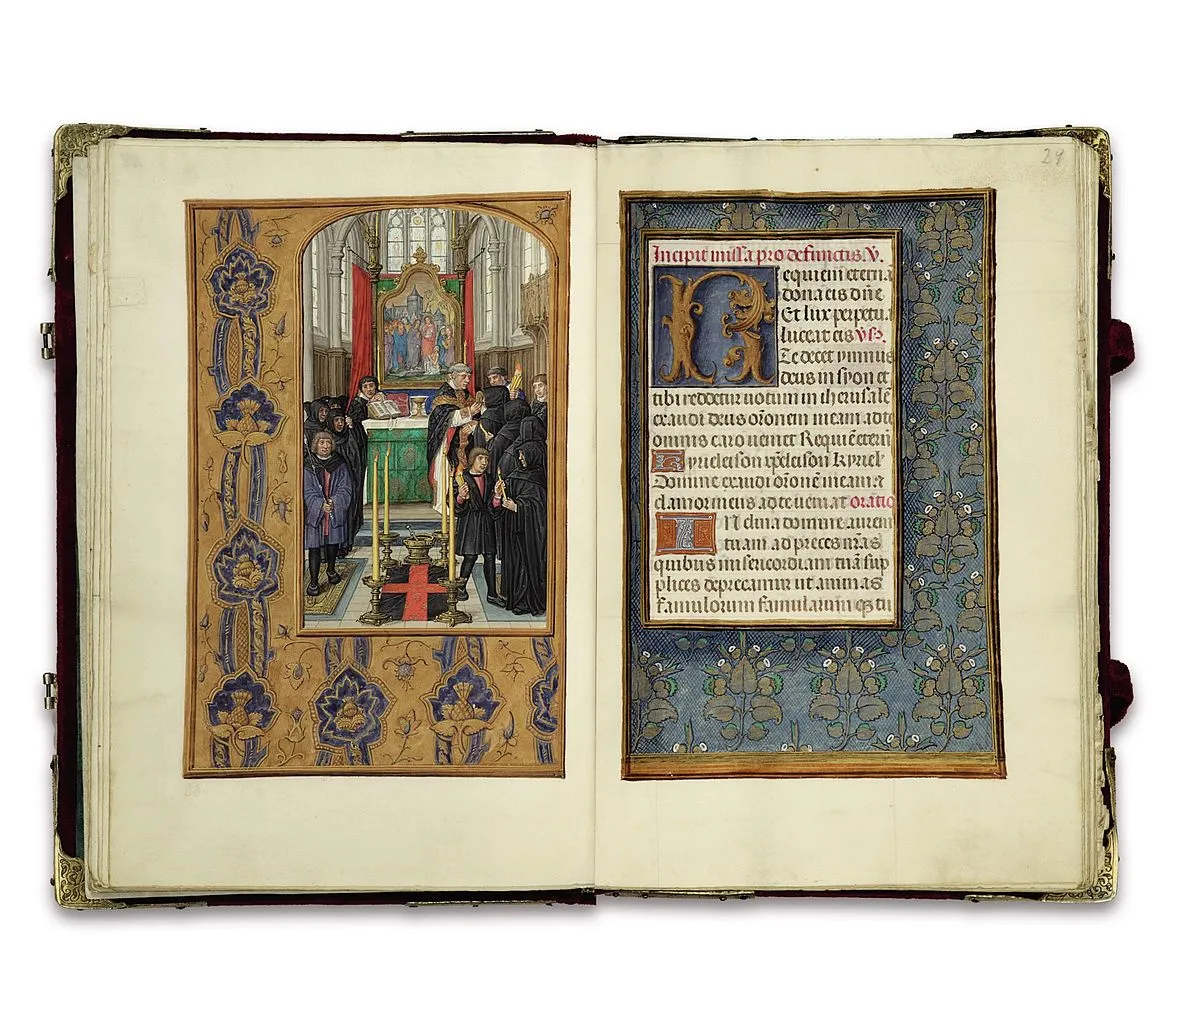 29
Incipit missa pro defunctis. V.
Requiem eterna
dona eis dñe
Et lux perpetua
luceat eis Vs.
Te decet ymnus
deus in syon et
tibi reddetur uotum in iherusalē
exaudi deus orōnem meam ad te
omnis caro ueniet Requiē etern
Kyrieleison xp̄eleison kyriel'
Domine exaudi orōnē meam a
clamor meus ad te ueniat oratio
Inclina domine aurem
tuam ad preces nr̄as
quibus misericordiam tuā sup
plices deprecamur ut animas
famulorum famularum qz tu